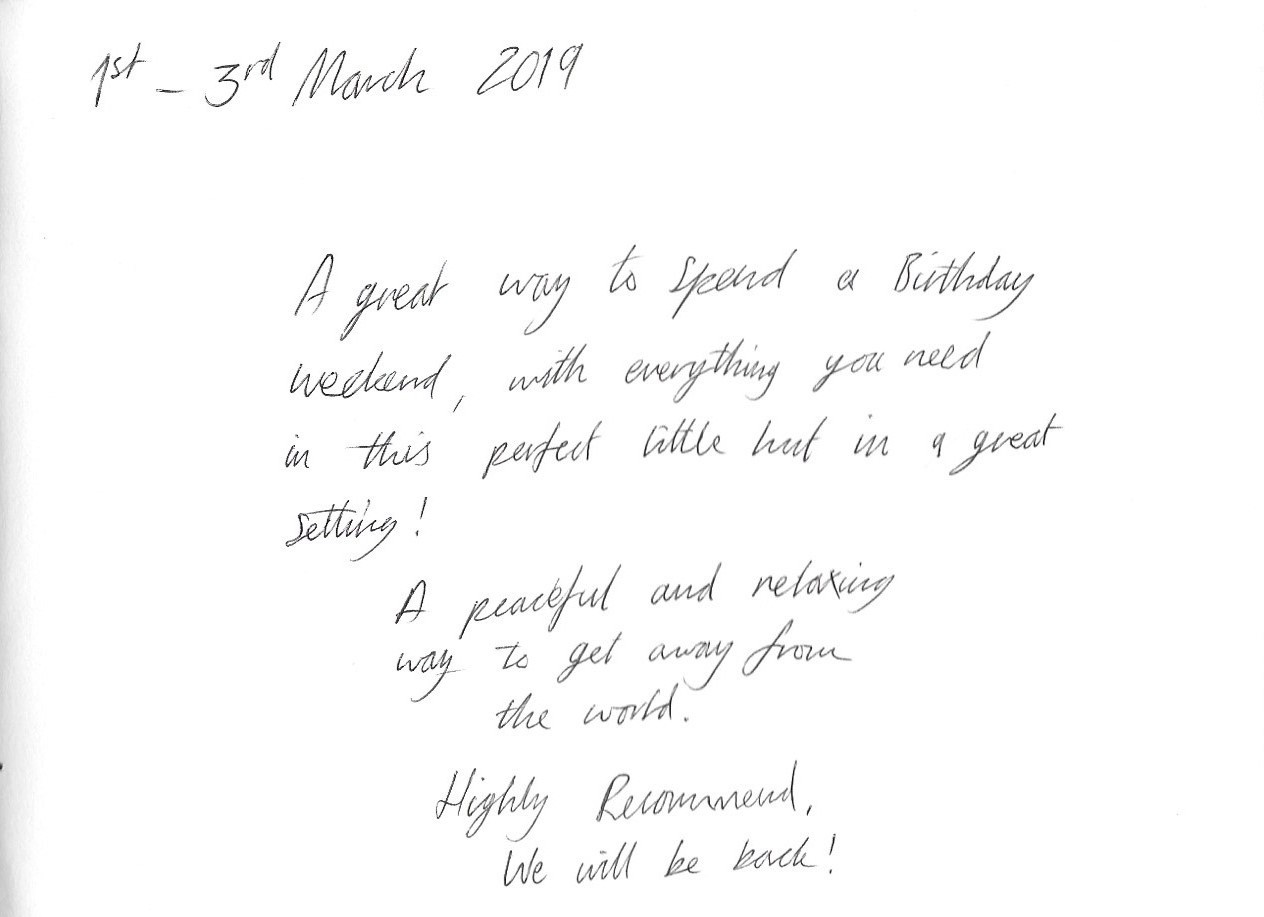 1st - 3rd March 2019
A great way to spend a Birthday
weekend, with everything you need
in this perfect little hut in a great
setting!
A peaceful and relaxing
way to get away from
the world.
Highly Recommend,
We will be back!